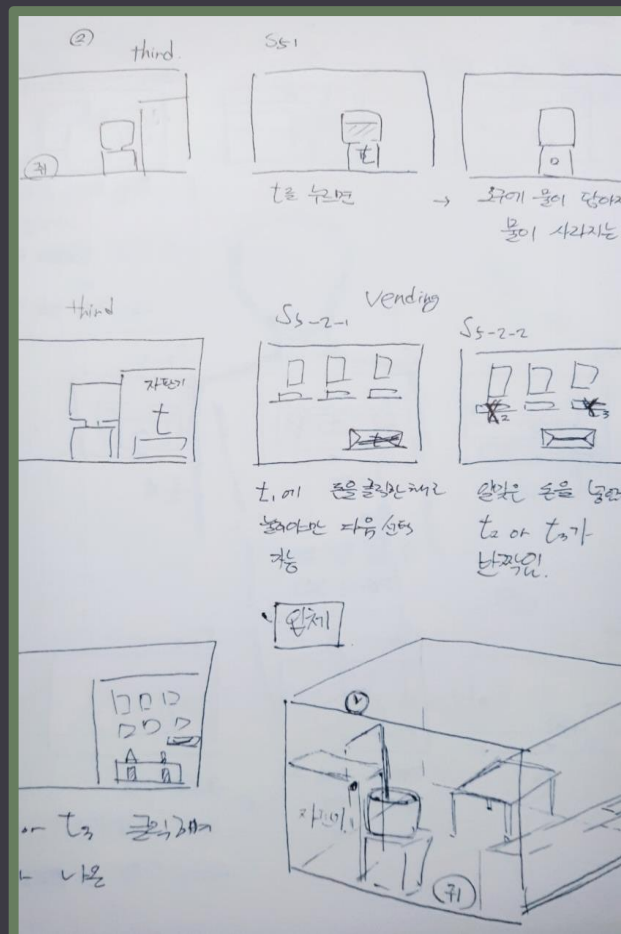 ②
third.
S5-1
쥐
t
t를 누르면
→
호구에 물이 담아지
물이 사라지는
third
Vending
S5-2-1
S5-2-2
자판기
t
t₁에 돈을 클릭한 채로
놓아야만 다음 선택
가능
알맞은 돈을 넣으면
t₂ or t₃가
반짝임.
전체
or t₃ 클릭하여
나온
자판기
쥐